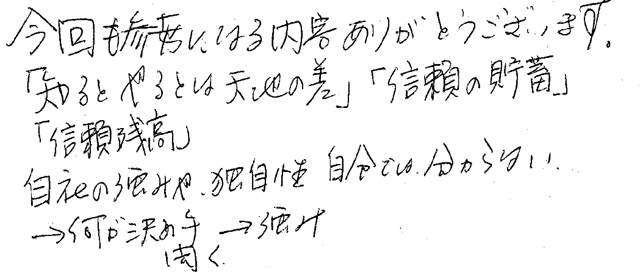 今回も参考になる内容ありがとうございます。
「知るとやるとは天地の差」「信頼の貯蓄」
「信頼残高」
自社の強みや、独自性 自分では、分からない.
→何が決め手 →強み
聞く